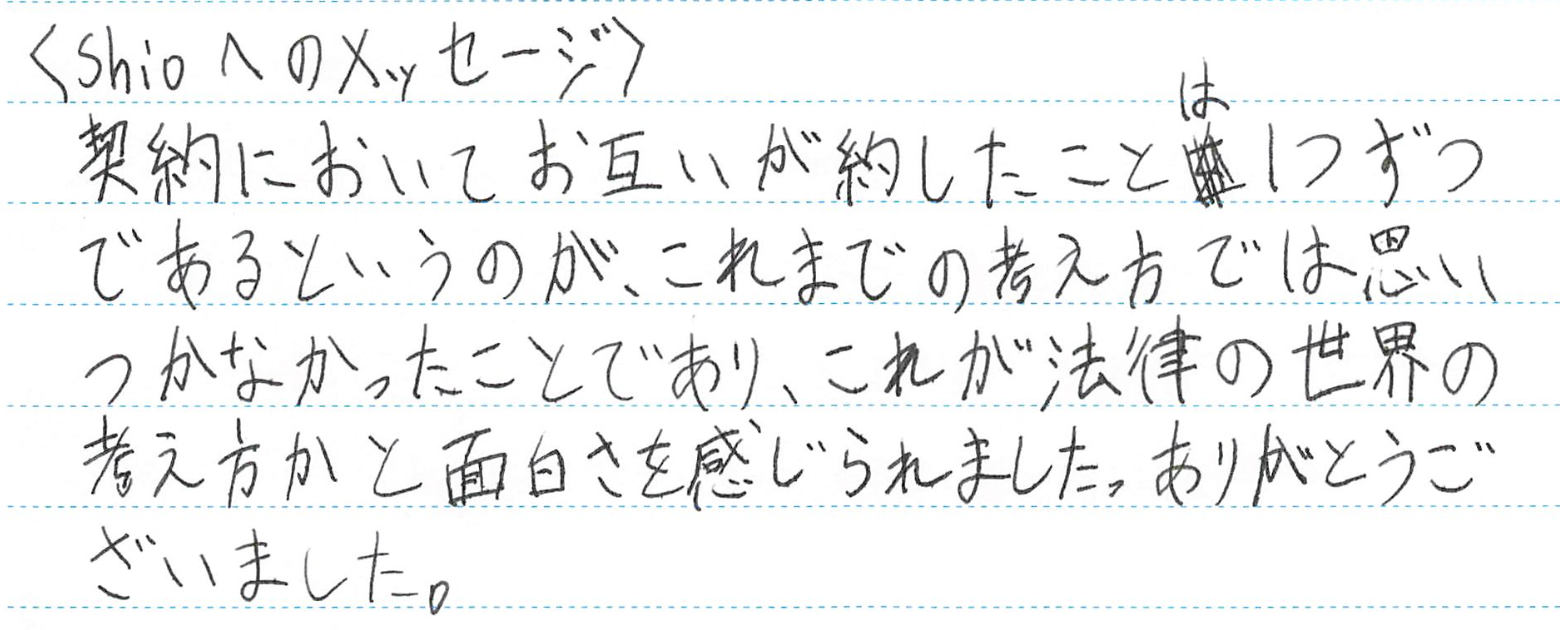 〈Shioへのメッセージ〉
契約においてお互いが約したことは1つずつ
であるというのが、これまでの考え方では思い
つかなかったことであり、これが法律の世界の
考え方かと面白さを感じられました。ありがとうご
ざいました。